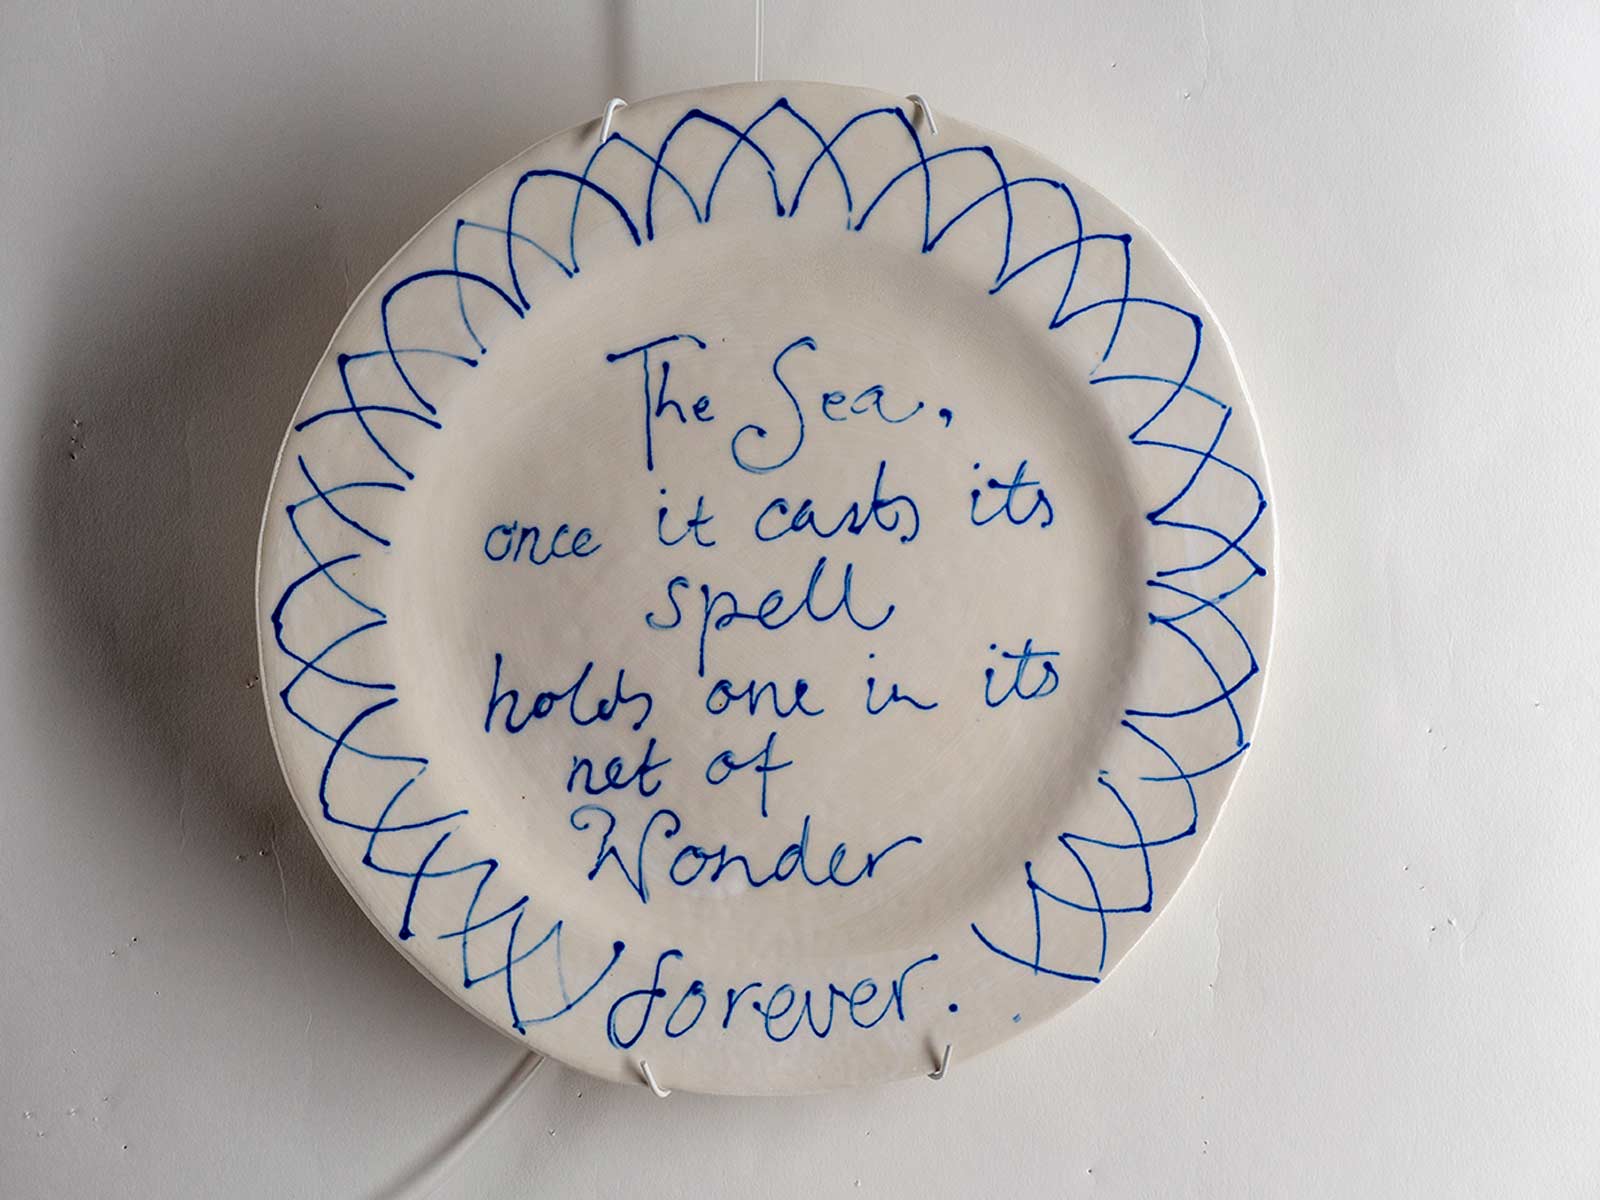 The Sea,
once it casts its
spell
holds one in its
net of
Wonder
forever.